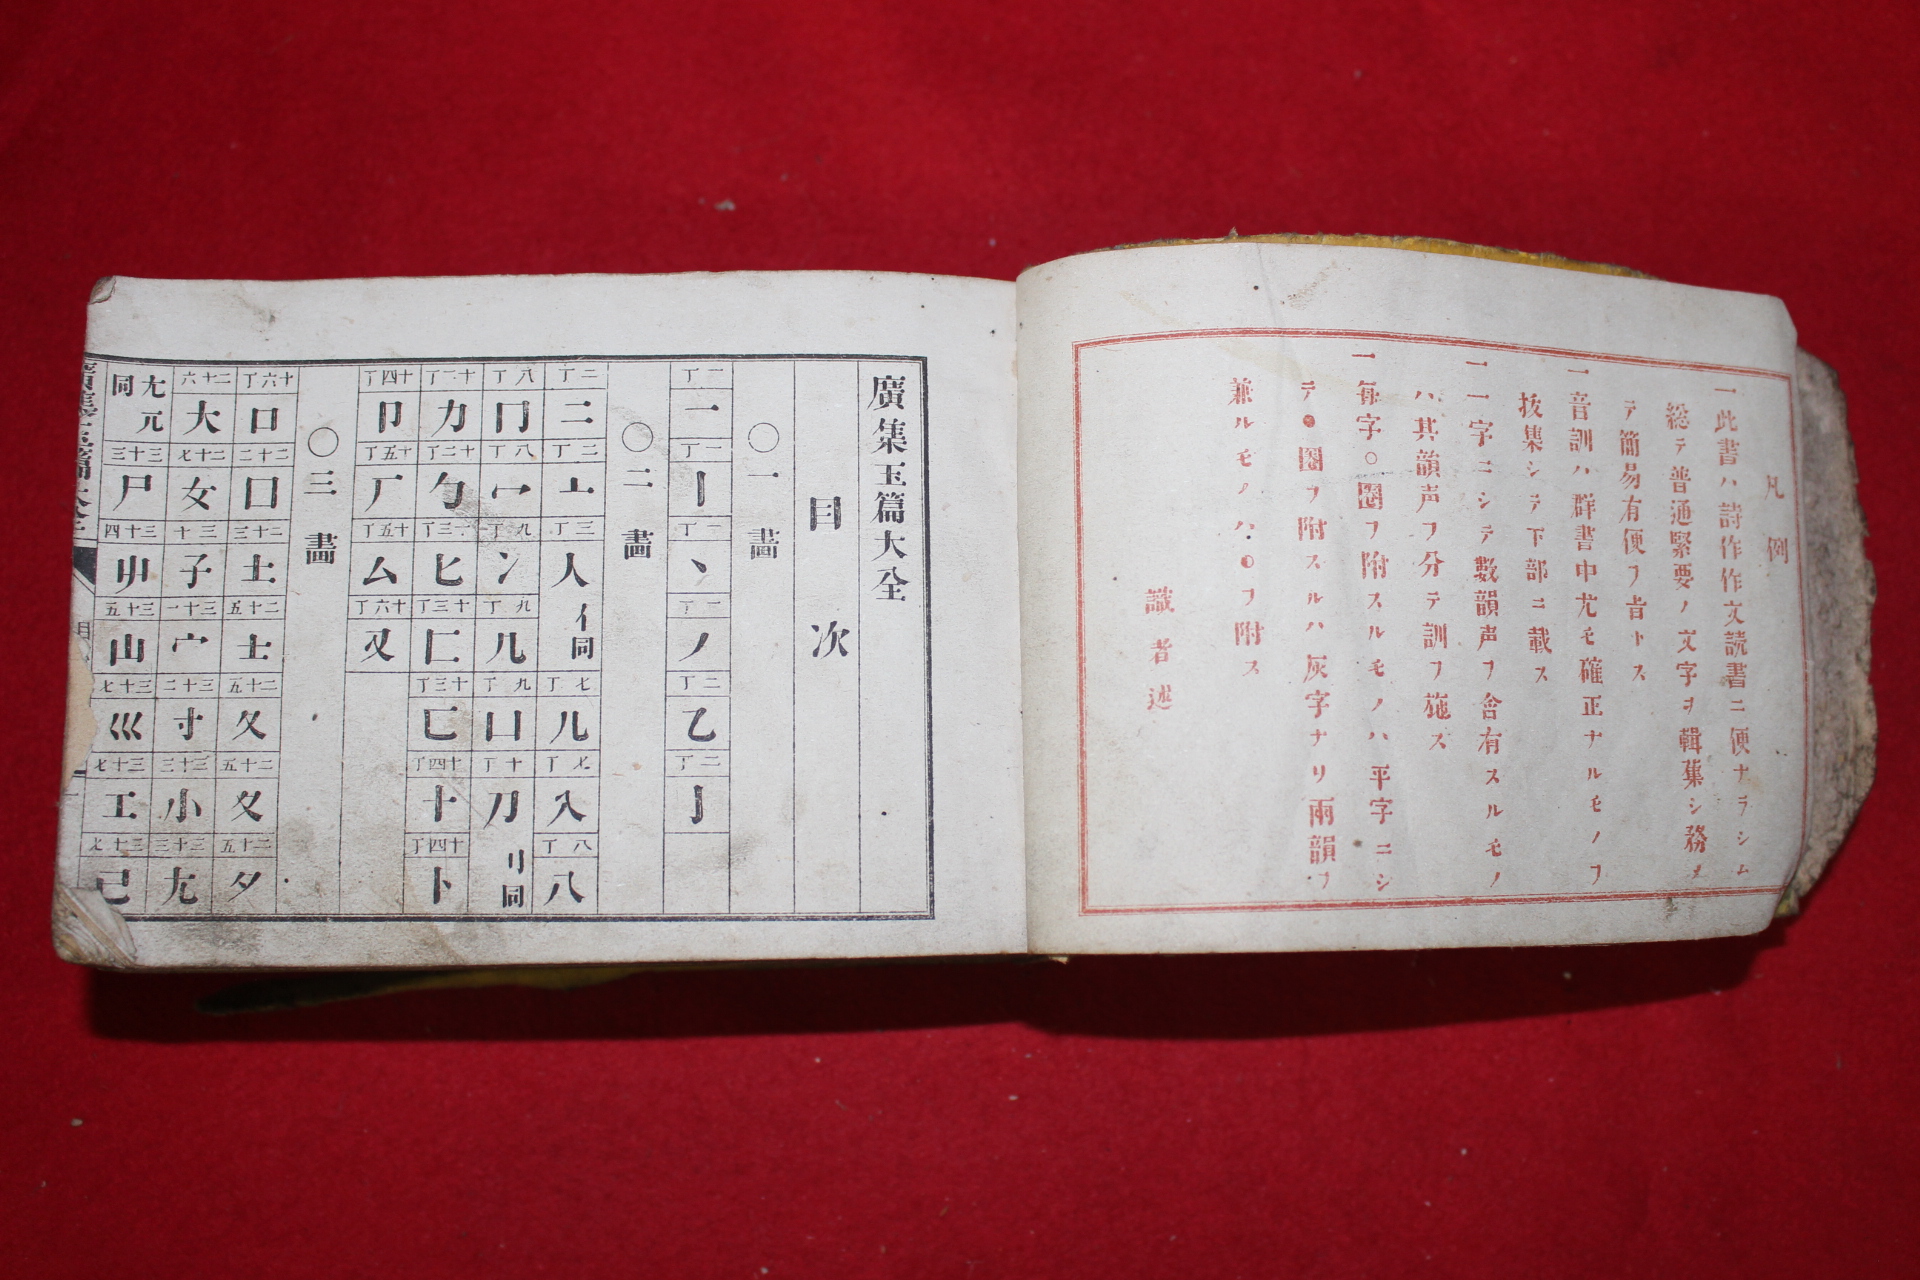 凡例
一此書ハ詩作作文読書ニ便ナラシム
総テ普通緊要ノ文字ヲ輯集シ務メ
テ簡易有便ヲ旨トス
一音訓ハ群書中尤モ確正ナルモノヲ
抜集シテ下部ニ載ス
一一字ニシテ數韻声ヲ含有スルモノ
ハ其韻声ヲ分テ訓ヲ施ス
一每字○圈ヲ附スルモノハ平字ニシ
テ●圈ヲ附スルハ灰字ナリ兩韻ヲ
兼ルモノハ
ヲ附ス
識者述
廣集玉篇大全
目次
○一畫
一丁 一
一丁 丨
一丁 丶
一丁 丿
二丁 乙
二丁 亅
○二畫
二丁 二
二丁 亠
三丁 人 亻同
七丁 儿
七丁 入
八丁 八
八丁 冂
八丁 冖
九丁 冫
九丁 几
九丁 凵
十丁 刀 刂同
十一丁 力
十二丁 勹
十三丁 匕
十三丁 匚
十三丁 匸
十四丁 十
十四丁 卜
十四丁 卩
十五丁 厂
十五丁 厶
十六丁 又
○三畫
十六丁 口
二十二 囗
二十三 土
二十五 士
二十五 夂
二十五 夊
二十五 夕
二十六 大
二十七 女
三十 子
三十一 宀
三十二 寸
三十三 小
三十三 尢
尣兀同
三十三 尸
三十四 屮
三十五 山
三十七 巛
三十七 工
三十七 己
廣集玉篇大全